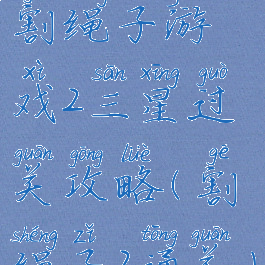 割绳子游
xì sān xīng guò
戏2三星过
guān gōng lüè gē
关攻略(割
shéng zǐ tōng guān
绳子2通关)